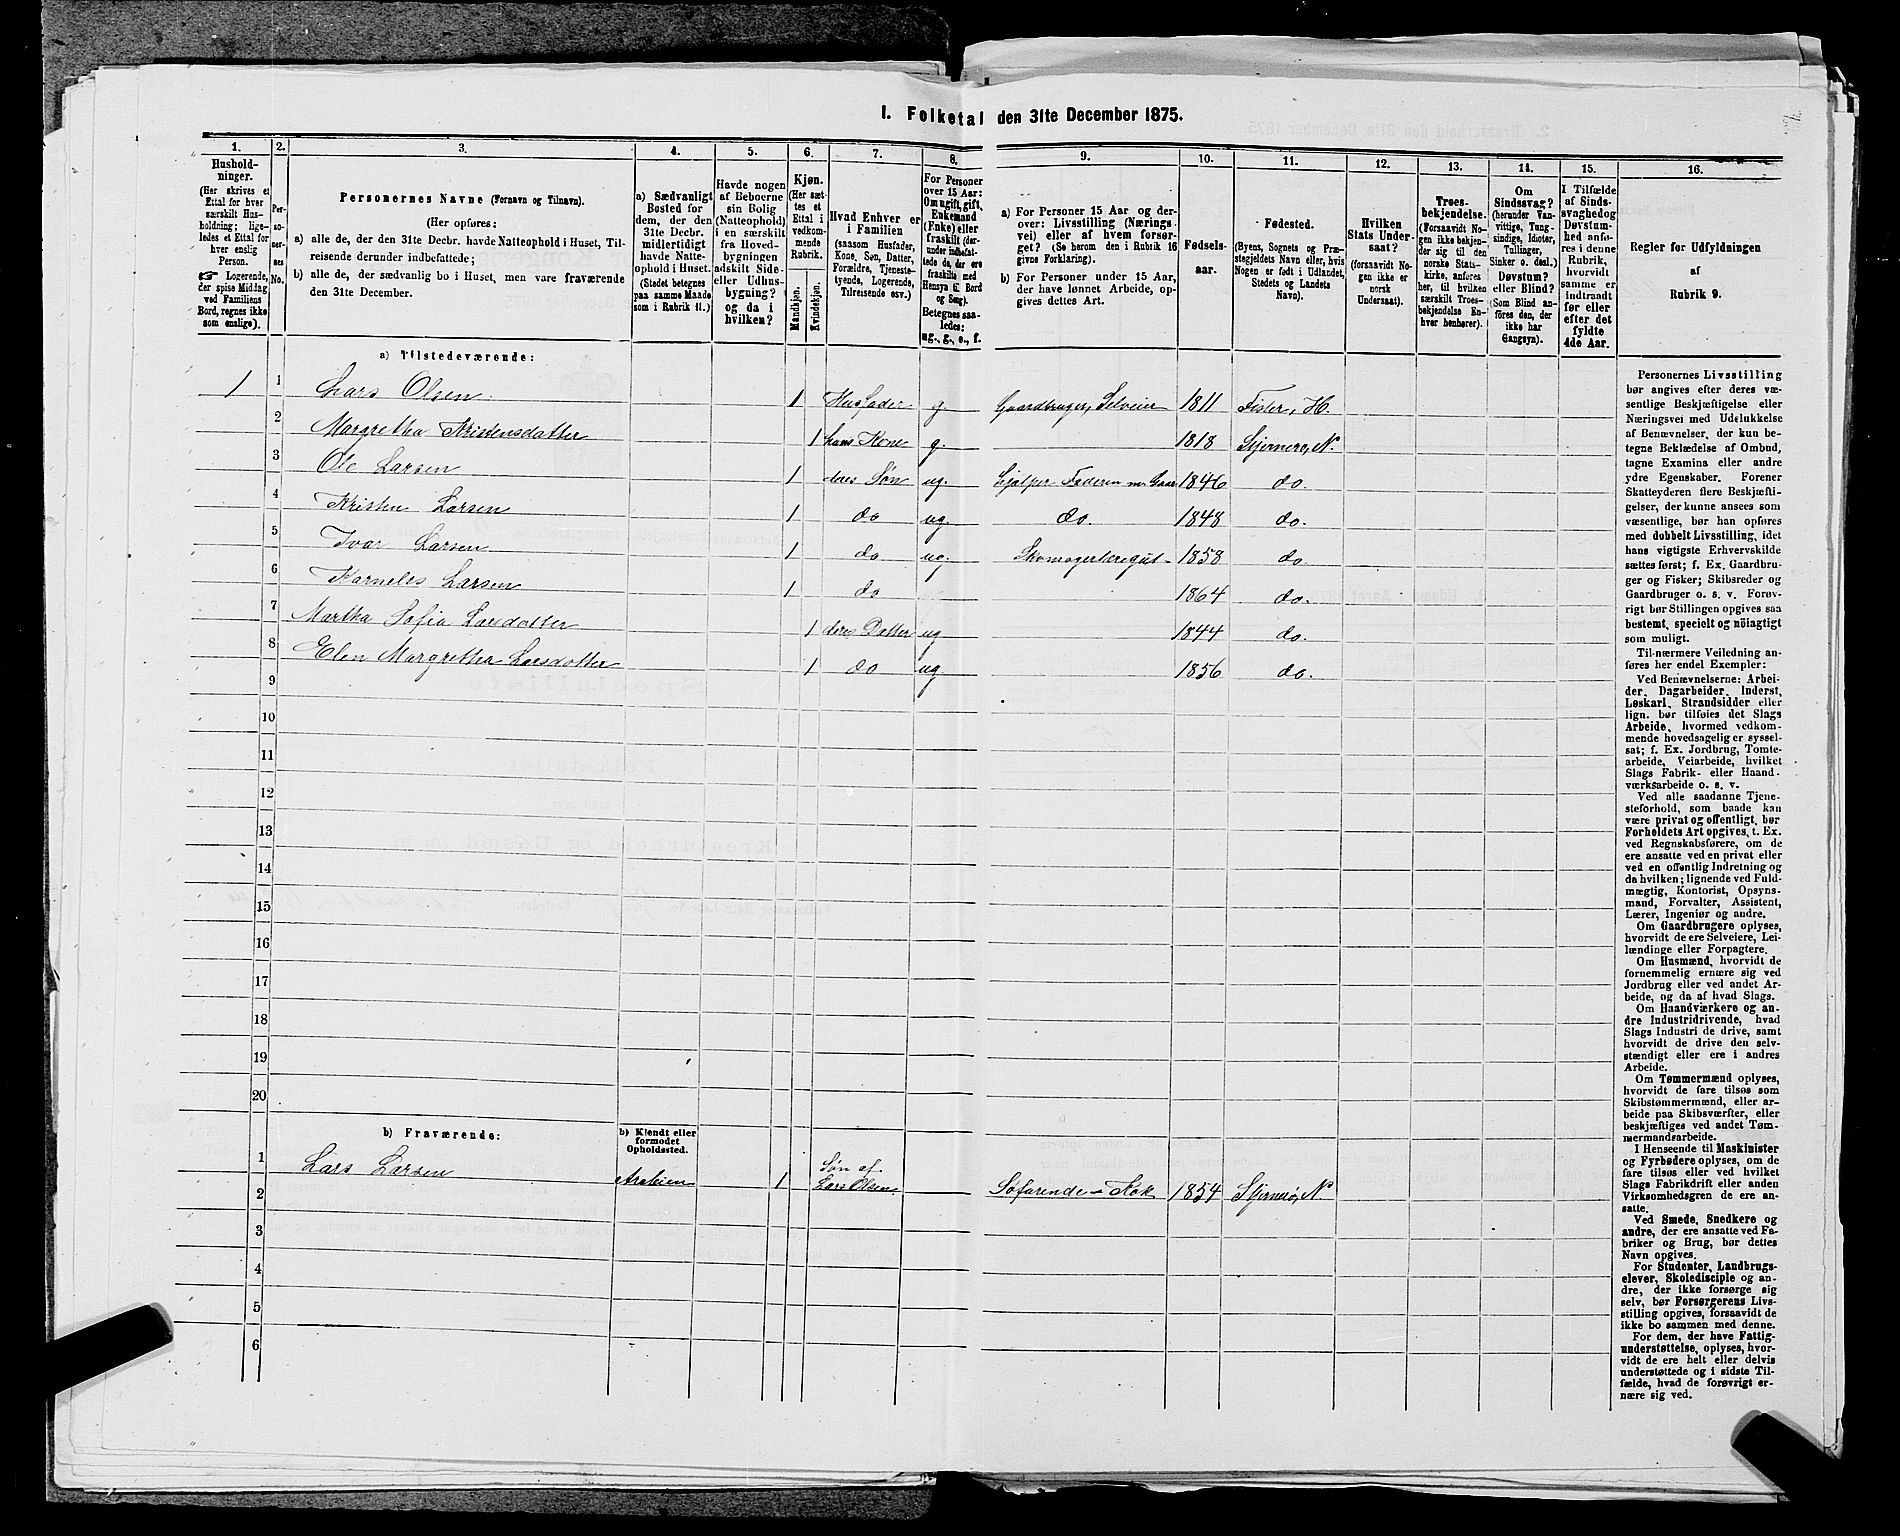 1. Folketal den 31te December 1875.
1. 2. 3. 4. 5. 6. 7. 8. 9. 10. 11. 12. 13. 14. 15. 16.
Hushold-
ninger.
(Her skrives et
Ettal for hver
særskilt Hus-
holdning; lige-
ledes et Ettal for
hver enslig
Person.
☞ Logerende,
der spise Middag
ved Familiens
Bord, regnes ikke
som enslige).
Per-
so-
ner-
nes
No.
Personernes Navne (Fornavn og Tilnavn).
(Her opføres:
a) alle de, der den 31te Decbr. havde Natteophold i Huset, Til-
reisende derunder indbefattede;
b) alle de, der sædvanlig bo i Huset, men vare fraværende
den 31te December.
a) Sædvanligt
Bosted for
dem, der den
31te Decbr.
midlertidigt
havde Natte-
ophold i Huset.
(Stedet betegnes
paa samme Maade
som i Rubrik 11.)
Havde nogen
af Beboerne
sin Bolig
(Natteophold)
i en særskilt
fra Hoved-
bygningen
adskilt Side-
eller Udhus-
bygning?
og da i
hvilken?
Kjøn.
(Her sæt-
tes et
Ettal i
vedkom-
mende
Rubrik.
Mandkjøn.
Kvindekjøn.
Hvad Enhver er
i Familien
(saasom Husfader,
Kone, Søn, Datter,
Forældre, Tjeneste-
tyende, Logerende,
Tilreisende osv.)
For Personer
over 15 Aar:
Om ugift, gift,
Enkemand
(Enke) eller
fraskilt (der-
under indbefat-
tede de, der ere
fraskilte med
Hensyn t. Bord
og Seng).
Betegnes saa-
ledes:
ug., g., e., f.
a) For Personer 15 Aar og der-
over: Livsstilling (Nærings-
vei) eller af hvem forsør-
get? (Se herom den i Rubrik 16
givne Forklaring).
b) For Personer under 15 Aar,
der have lønnet Arbeide, op-
gives dettes Art.
Fødsels-
aar.
Fødested.
(Byens, Sognets og Præ-
stegjeldets Navn eller, hvis
Nogen er født i Udlandet,
Stedets og Landets
Navn).
Hvilken
Stats Under-
saat?
(forsaavidt No-
gen ikke er
norsk
Undersaat).
Troes-
bekjendelse.
(Forsaavidt No-
gen ikke bekjen-
der sig til den
norske Stats-
kirke, anføres
her, til hvilken
særskilt Troes-
bekjendelse En-
hver henhører).
Om
Sindssvag?
(herunder Van-
vittige, Tung-
sindige, Idioter,
Tullinger,
Sinker o. desl.)
Døvstum?
eller Blind?
(Som Blind an-
føres den, der
ikke har
Gangsyn).
I Tilfælde
af Sinds-
svaghed og
Døvstum-
hed anfø-
res i denne
Rubrik,
hvorvidt
samme er
indtraadt
før eller
efter det
fyldte
4de Aar.
Regler for Udfyldningen
af
Rubrik 9.
a) Tilstedeværende:
1 1 Lars Olsen 1 Husfader g Gaardbruger, Selveier 1811 Fister, H.
2 Margretha Kristensdatter 1 hans Kone g. 1818 Stjernerø, N.
3 Ole Larsen 1 deres Søn ug. hjelper Faderen m Gaar 1846 do.
4 Kristen Larsen 1 do ug. do. 1848 do.
5 Ivar Larsen 1 do ug. 1858 do.
6 Karneles Larsen 1 do 1864 do.
7 Martha Sofia Larsdatter 1 deres Datter ug 1844 do.
8 Elen Margretha Larsdotter 1 do ug. 1856 do.
9
10
11
12
13
14
15
16
17
18
19
20
b) Fraværende:
b) Kjendt eller
formodet
Opholdssted.
1 Lars Larsen Arabien 1 Søn af
Lars Olsen Søfarende - Kok 1854 Stjernerø, N
2
3
4
5
6
Personernes Livsstilling
bør angives efter deres væ-
sentlige Beskjæftigelse eller
Næringsvei med Udelukkelse
af Benævnelser, der kun be-
tegne Beklædelse af Ombud,
tagne Examina eller andre
ydre Egenskaber. Forener
Skatteyderen flere Beskjæfti-
gelser, der kunne ansees som
væsentlige, bør han opføres
med dobbelt Livsstilling, idet
hans vigtigste Erhvervskilde
sættes først; f. Ex. Gaardbru-
ger og Fisker; Skibsreder og
Gaardbruger o. s. v. Forøv-
rigt bør Stillingen opgives saa
bestemt, specielt og nöiagtigt
som muligt.
Til nærmere Veiledning an-
føres her endel Exempler:
Ved Benævnelserne: Arbei-
der, Dagarbeider, Inderst,
Løskarl, Strandsidder eller
lign. bør tilføies det Slags
Arbeide, hvormed vedkom-
mende hovedsagelig er syssel-
sat; f. Ex. Jordbrug, Tomte-
arbeide, Veiarbeide, hvilket
Slags Fabrik- eller Haand-
værksarbeide o. s. v.
Ved alle saadanne Tjene-
steforhold, som baade kan
være privat og offentligt, bør
Forholdets Art opgives, t. Ex.
ved Regnskabsførere, om de
ere ansatte ved en privat eller
ved en offentlig Indretning og
da hvilken; lignende ved Fuld-
mægtig, Kontorist, Opsyns-
mand, Forvalter, Assistent,
Lærer, Ingeniør og andre.
Om Gaardbrugere oplyses,
hvorvidt de ere Selveiere, Lei-
lændinge eller Forpagtere.
Om Husmænd, hvorvidt de
fornemmelig ernære sig ved
Jordbrug eller ved andet Ar-
beide, og da af hvad Slags.
Om Haandværkere og an-
dre Industridrivende, hvad
Slags Industri de drive, samt
hvorvidt de drive den selv-
stændigt eller ere i andres
Arbeide.
Om Tømmermænd oplyses,
hvorvidt de fare tilsøs som
Skibstømmermænd, eller ar-
beide paa Skibsværfter, eller
beskjæftiges ved andet Tøm-
mermandsarbeide.
I Henseende til Maskinister
og Fyrbødere oplyses, om de
fare tilsøs eller ved hvilket
Slags Fabrikdrift eller anden
Virksomhedsgren de ere an-
satte.
Ved Smede, Snedkere og
andre, der ere ansatte ved Fa-
briker og Brug, bør dettes
Navn opgives.
For Studenter, Landbrugs-
elever, Skoledisciple og an-
dre, der ikke forsørge sig
selv, bør Forsørgerens Livs-
stilling opgives, forsaavidt de
ikke bo sammen med denne.
For dem, der have Fattig-
understøttelse, oplyses, hvor-
vidt de ere helt eller delvis
understøttede og i sidste Til-
fælde, hvad de forøvrigt er-
nære sig ved.